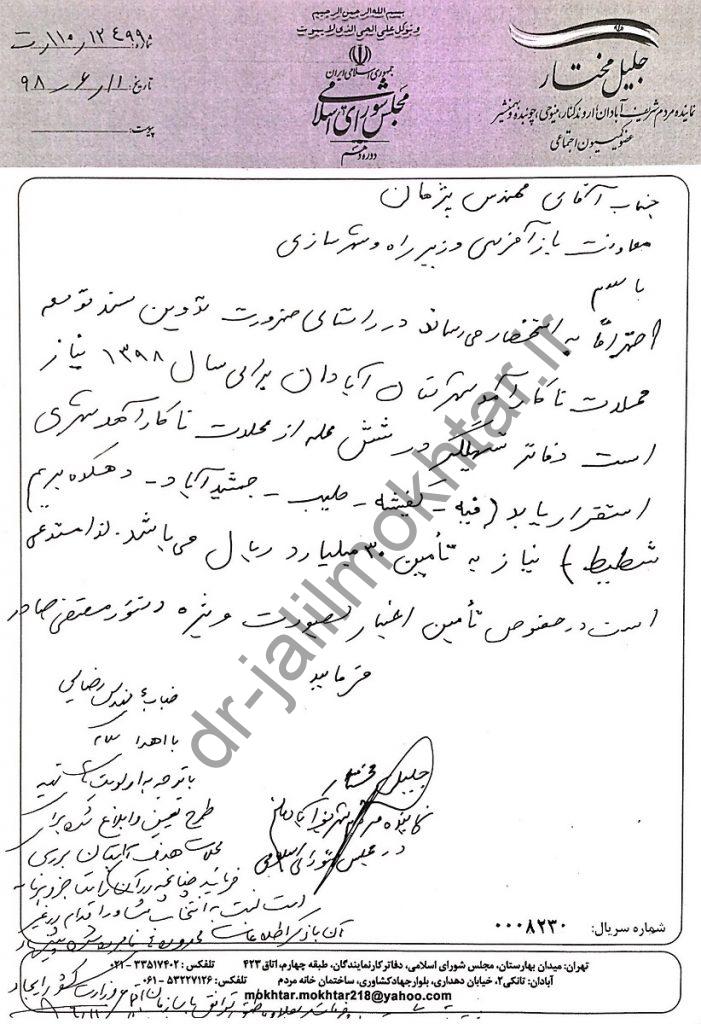 بسم الله الرحمن الرحیم
و توکل علی الحی الذی لایموت
جمهوری اسلامی ایران
مجلس شورای اسلامی
دوره دهم
جلیل مختار
نماینده مردم شریف آبادان، اروندکنار، مینوحی، چوئبده و بهمنشیر
عضو کمیسیون اجتماعی
شماره: ۱۱۰/۱۲۴۹۹۵/ت
تاریخ: ۹۸/۶/۱۱
پیوست:
جناب آقای مهندس پژمان
معاونت بازآفرینی وزیر راه و شهرسازی
با سلام
احتراماً به استحضار می‌رساند در راستای ضرورت تدوین سند توسعه
محلات ناکارآمد شهرستان آبادان برای سال ۱۳۹۸ نیاز
است دفاتر تسهیلگر در شش محله از محلات ناکارآمد شهری
استقرار یابد (فیه - کفیشه - صلیب - جمشیدآباد - دهکده بریم
شطیط) نیاز به تأمین ۳۰ میلیارد ریال می‌باشد. لذا مستدعی
است در خصوص تأمین اعتبار بصورت ویژه دستور مقتضی صادر
فرمایید
جلیل مختار
نماینده مردم شریف آبادان
در مجلس شورای اسلامی
جناب مهندس رضایی
با اهداء سلام
با توجه به اولویت‌های تهیه
طرح تعیین و ابلاغ شده برای
محلات هدف استان بررسی
فرمائید چنانچه در آن راستا جزو برنامه
است نسبت به انتخاب مشاور اقدام در غیر
آن با ذکر اطلاعات
dr-jalilmokhtar.ir
شماره سریال: ۰۰۰۸۲۳۰
تهران: میدان بهارستان، مجلس شورای اسلامی، دفاتر کار نمایندگان، طبقه چهارم، اتاق ۴۲۳ تلفکس: ۳۳۵۱۷۴۰۲-۰۲۱
آبادان: تانکی ۲، خیابان دهداری، بلوار جهاد کشاورزی، ساختمان خانه مردم تلفکس: ۵۳۲۲۷۱۲۶-۰۶۱
mokhtar.mokhtar218@yahoo.com